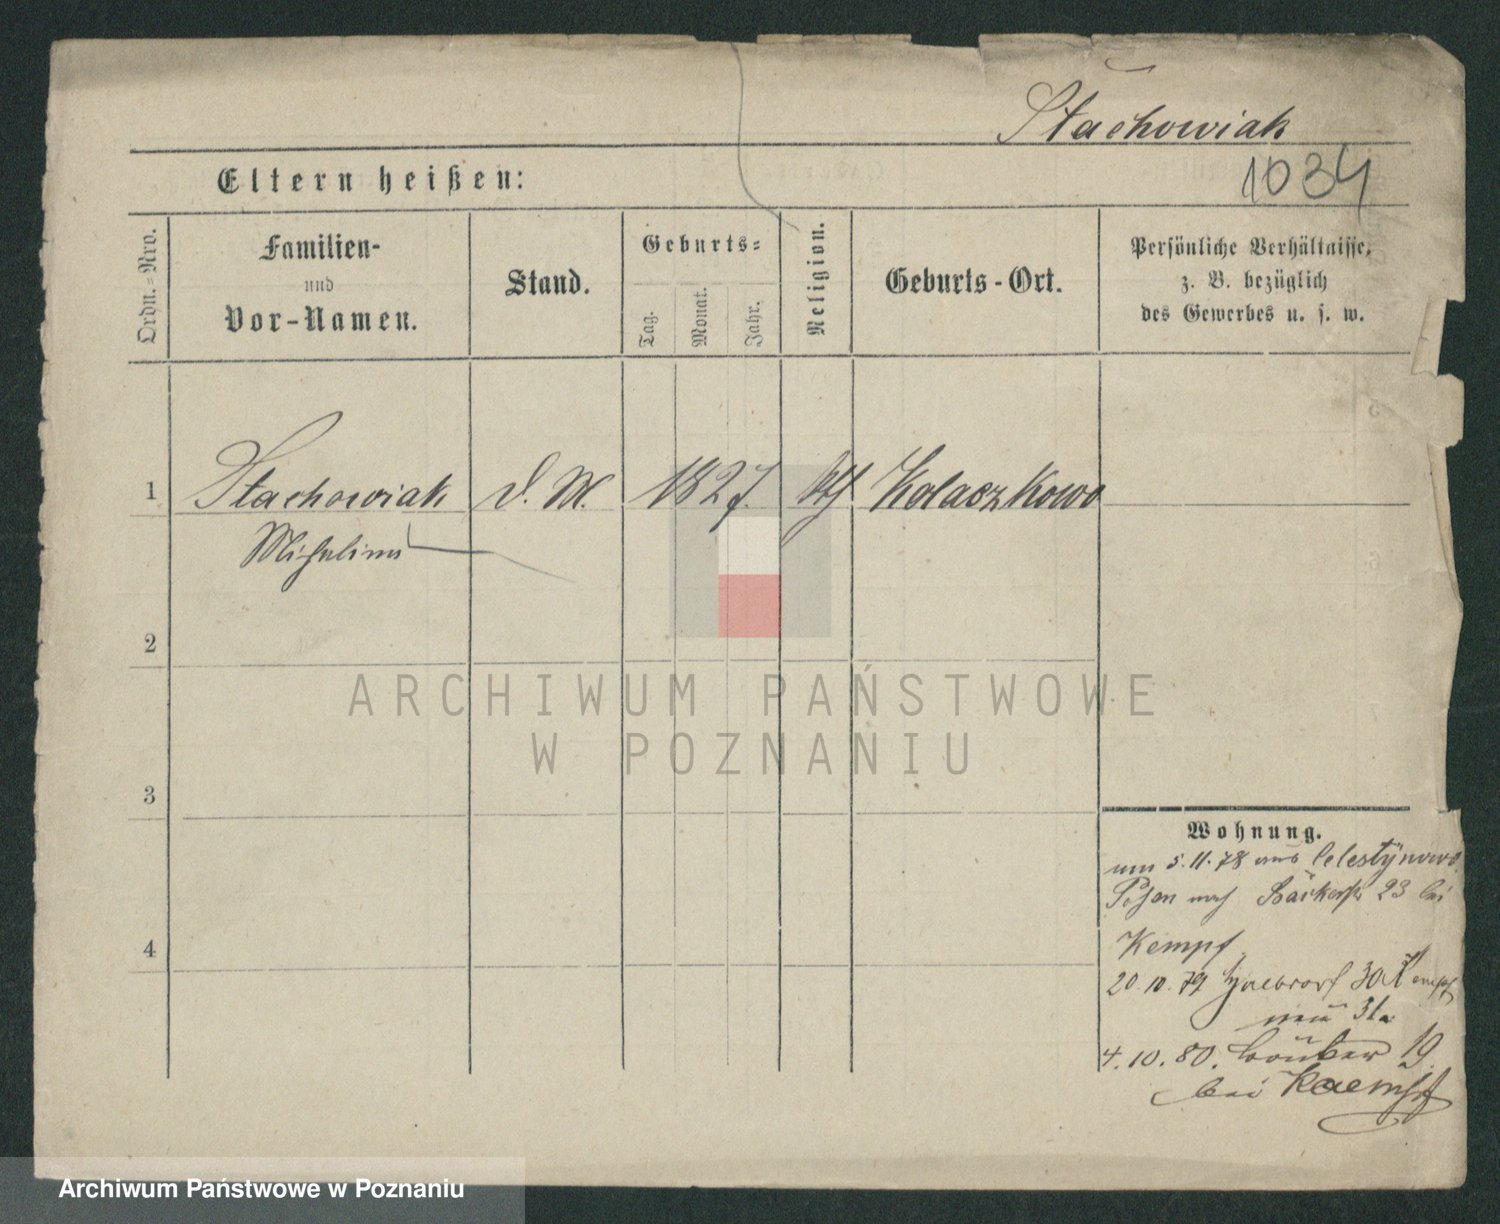 Stachowiak
1034
Eltern heißen:
Ordn.-Nro.
Familien-
und
Vor-Namen.
Stand.
Geburts-
Tag.
Monat.
Jahr.
Religion.
Geburts-Ort.
Persönliche Verhältnisse,
z. B. bezüglich
des Gewerbes u. s. w.
1
Stachowiak
D. M.
1827.
Kth
Kolaczkowo
Michalina
2
3
4
Wohnung.
um 5.11.78 aus Celestynowo
Posen nach Bäckerstr 23 bei
Kempf
20.10.79 30 Kempf
neu 31a
4.10.80. 19.
bei Kaempf
ARCHIWUM PAŃSTWOWE
W POZNANIU
Archiwum Państwowe w Poznaniu